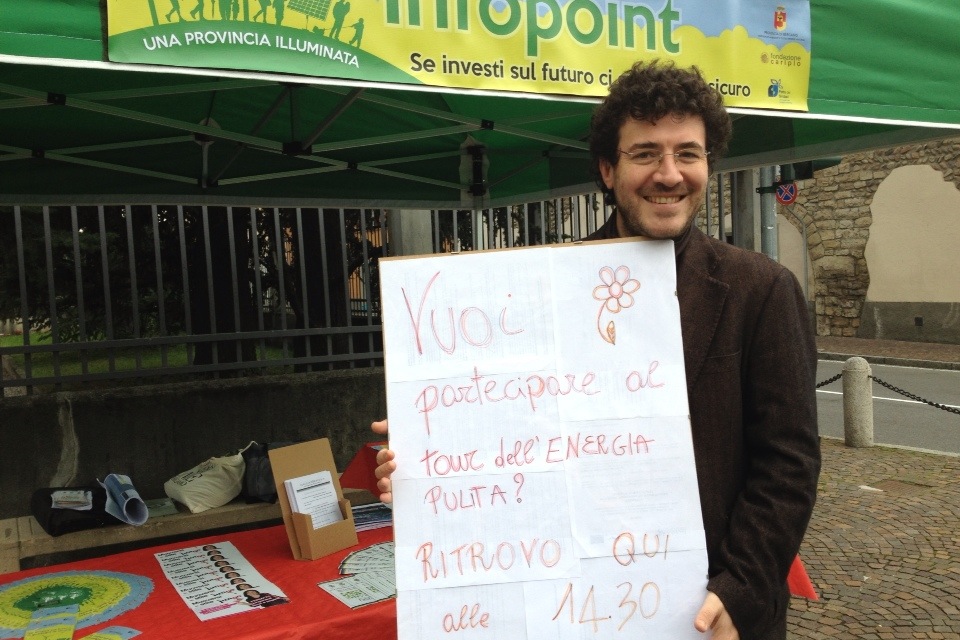 infopoint
UNA PROVINCIA ILLUMINATA
Se investi sul futuro ci sicuro
fondazione
cariplo
Vuoi
partecipare al
tour dell'ENERGIA
PULITA?
RITROVO QUI
alle 14.30